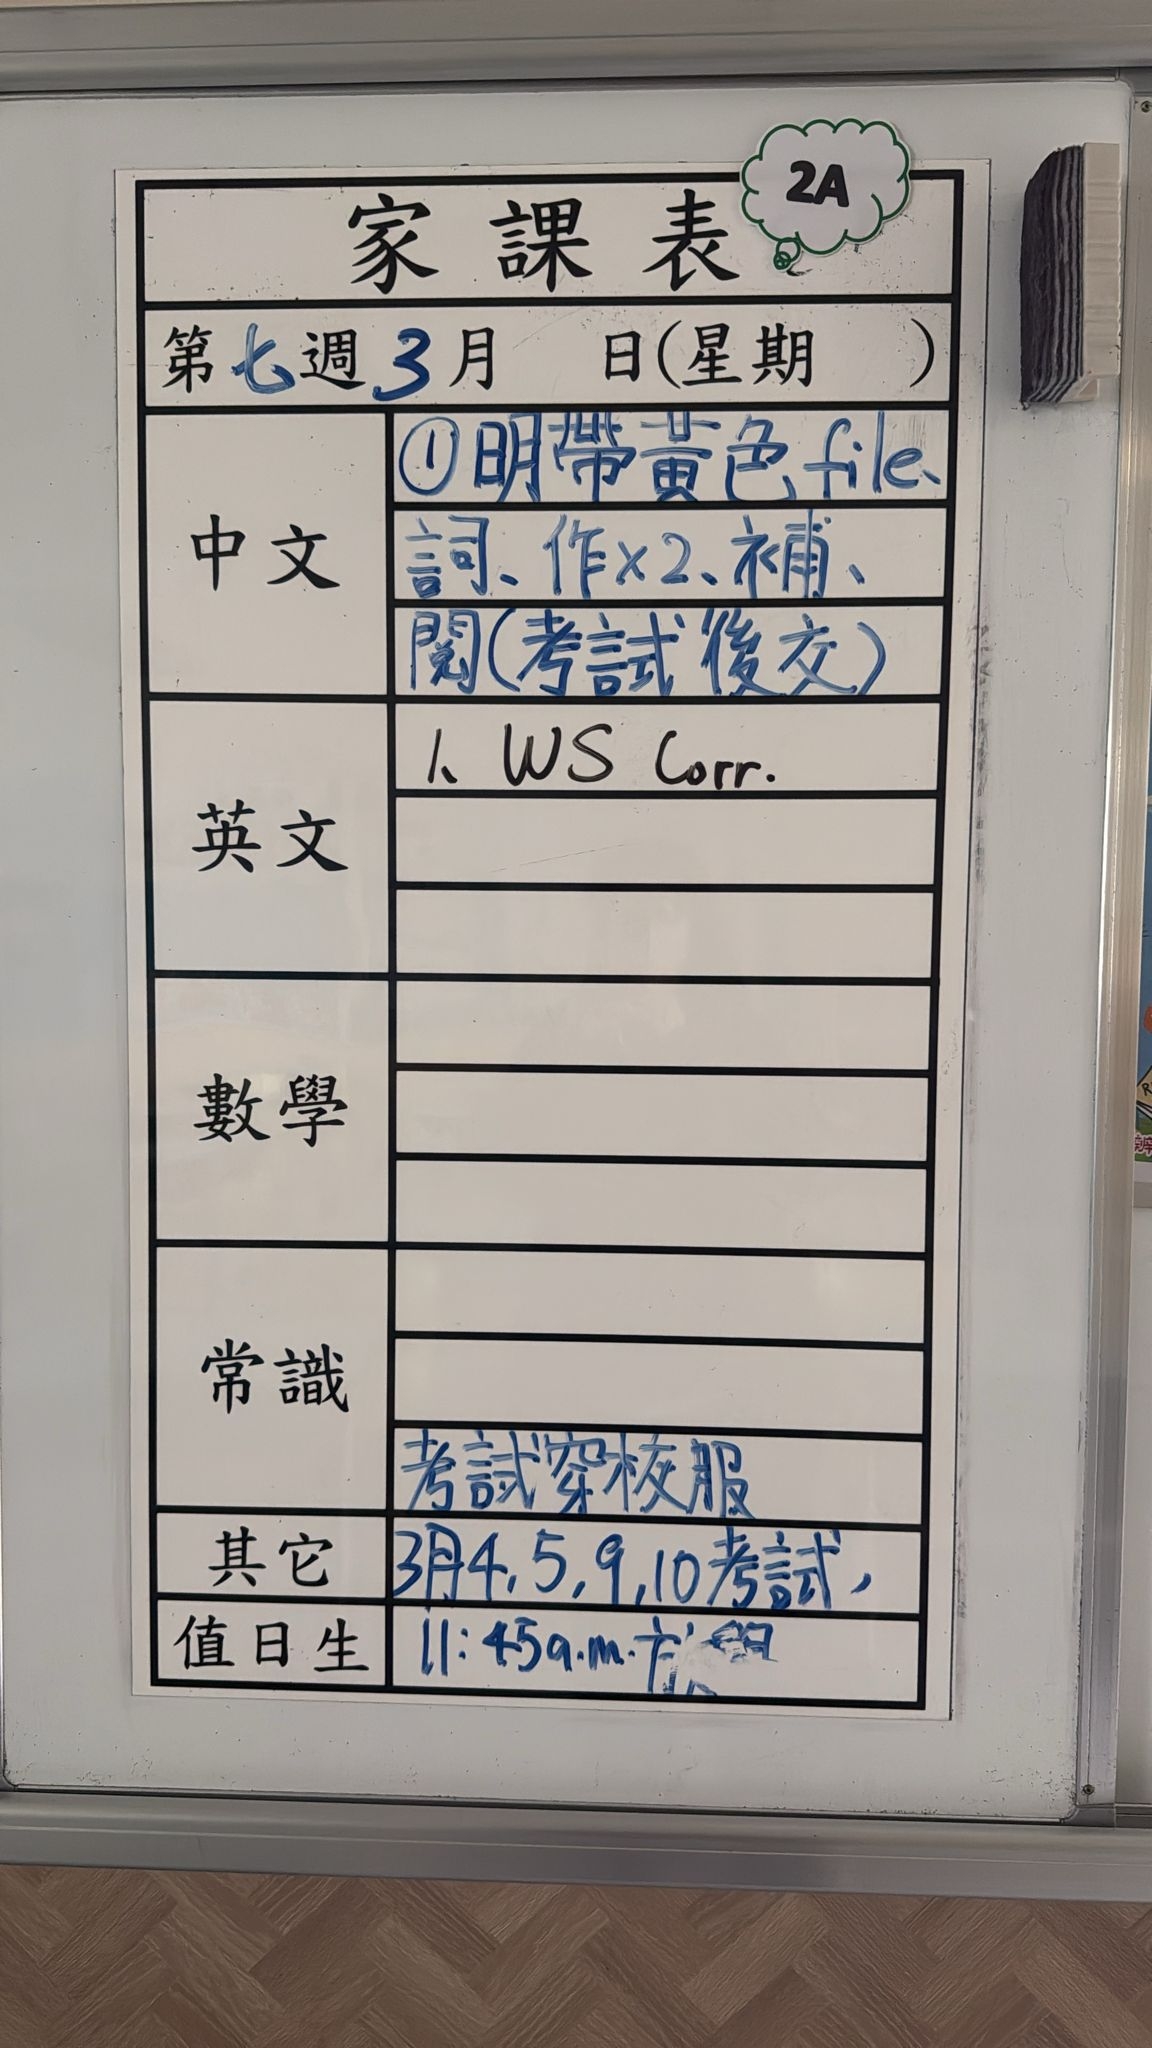 2A
家課表
第七週3月 日(星期 )
中文
①明帶黃色file、
詞、作×2、補、
閱(考試後交)
英文
1、WS Corr.
數學
常識
考試穿校服
其它
3月4,5,9,10考試,
值日生
11:45a.m.放學